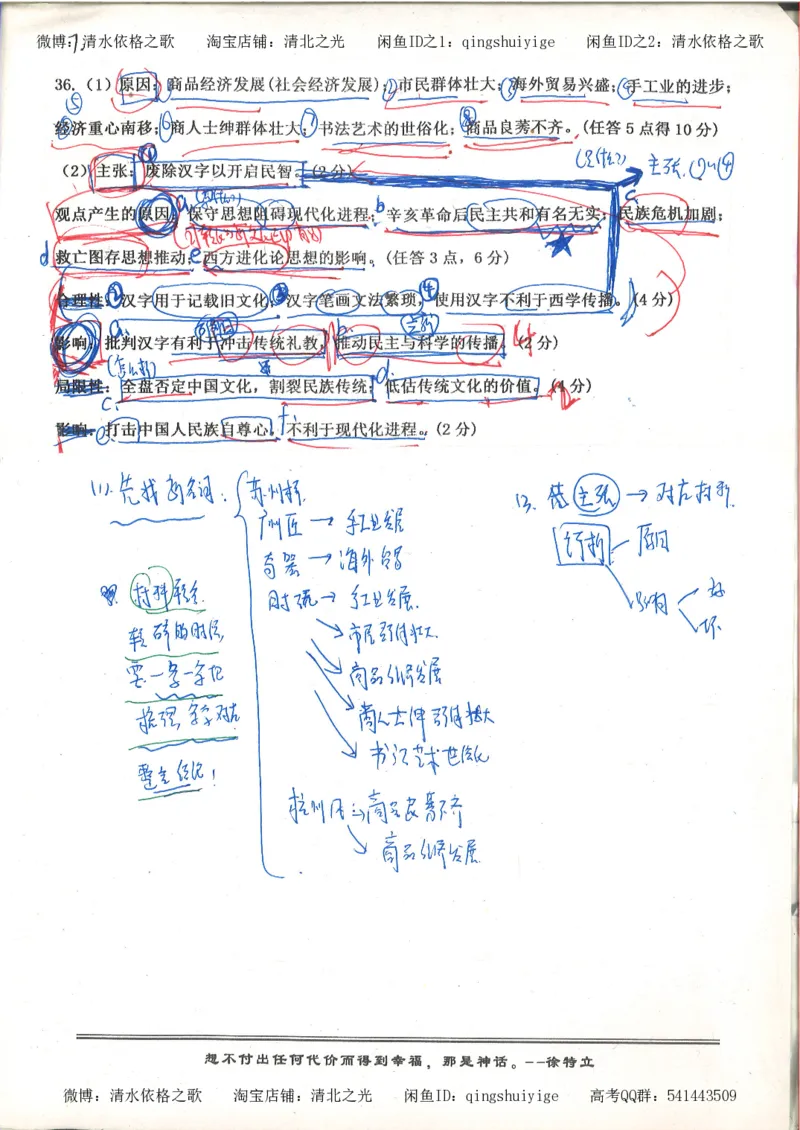 微博：清水依格之歌 淘宝店铺：清北之光 闲鱼ID之1：qingshuiyige 闲鱼ID之2：清水依格之歌
36.（1）原因：商品经济发展(社会经济发展)；②市民群体壮大；③海外贸易兴盛；④手工业的进步；
⑤经济重心南移；⑥商人士绅群体壮大；⑦书法艺术的世俗化；⑧商品良莠不齐。(任答5点得10分)
（2）主张：①废除汉字以开启民智。(2分)
主张
观点产生的原因：a保守思想阻碍现代化进程；b辛亥革命后民主共和有名无实；c民族危机加剧；
d救亡图存思想推动；e西方进化论思想的影响。(任答3点，6分)
合理性：②汉字用于记载旧文化，③汉字笔画文法繁琐，④使用汉字不利于西学传播。(4分)
影响：a.批判汉字有利于冲击传统礼教，b.推动民主与科学的传播。(2分)
局限性：全盘否定中国文化，割裂民族传统；d.低估传统文化的价值。(4分)
c.
影响：e打击中国人民族自尊心，f.不利于现代化进程。(2分)
(1).先找新名词.
苏州样
广州匠→手工业发展
奇器→海外贸易
时玩→手工业发展.
市民群体壮大
商品经济发展
商人士绅群体壮大
书法艺术世俗化
杭州风→商品良莠不齐
商品经济发展.
材料
一字一字
对应
整合
主张→对应材料.
分析
原因
影响
好
坏
想不付出任何代价而得到幸福，那是神话。--徐特立
微博：清水依格之歌 淘宝店铺：清北之光 闲鱼ID：qingshuiyige 高考QQ群：541443509